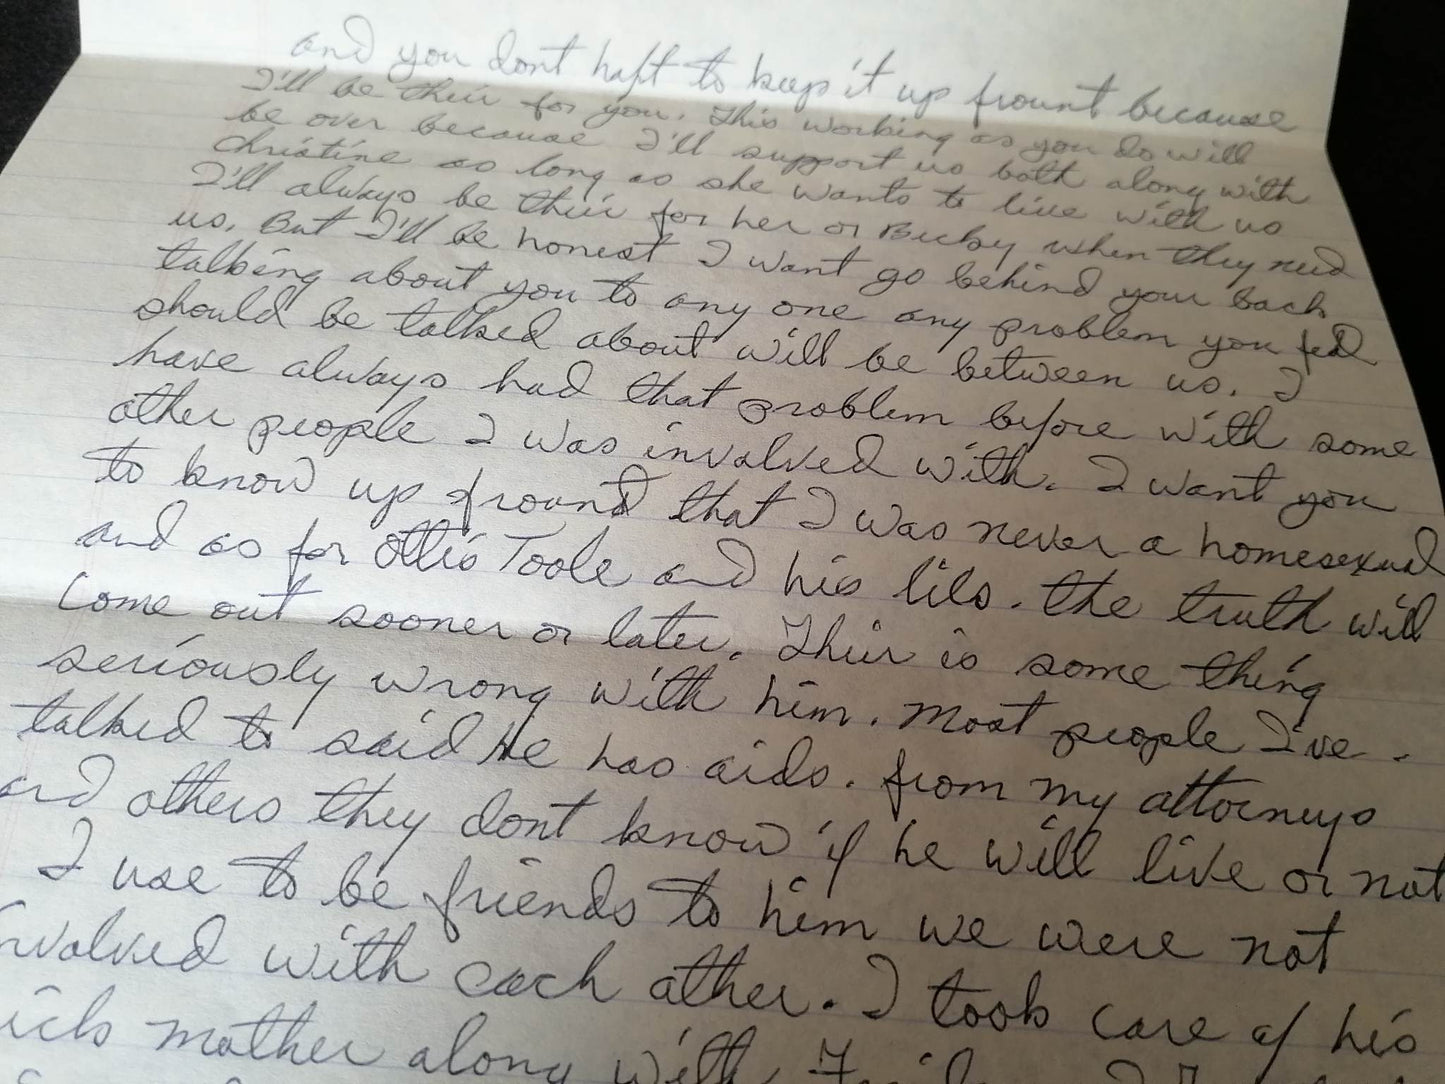 and you dont haft to keep it up frount because
I'll be their for you. This working as you do will
be over because I'll support us both along with
Christine as long as she wants to live with us
I'll always be their for her or Becky when they need
us. But I'll be honest I want go behind your back
talking about you to any one any problem you feel
should be talked about will be between us. I
have always had that problem before with some
other people I was involved with. I want you
to know up frount that I was never a homesexual
and as for Ottis Toole and his lils. the truth will
Come out sooner or later. Their is some thing
seriously wrong with him. Most people I've
talked to said He has aids. from my attorneys
and others they dont know if he will live or not
I use to be friends to him we were not
involved with each other. I took care of his
mother along with